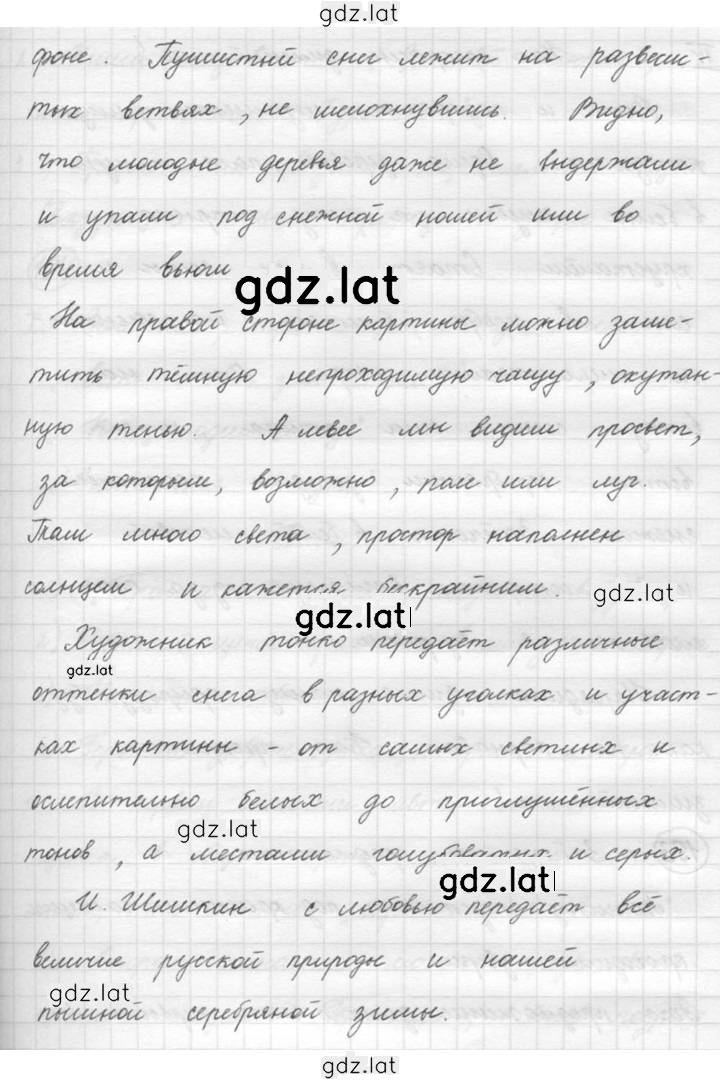 gdz.lat
фоне. Пушистый снег лежит на развеси-
тых ветвях, не шелохнувшись. Видно,
что молодые деревья даже не выдержали
и упали под снежной ношей или во
время вьюги
gdz.lat
На правой стороне картины можно заме-
тить тёмную непроходимую чащу, окутан-
ную тенью. А левее мы видим просвет,
за которым, возможно, поле или луг.
Там много света, простор наполнен
солнцем и кажется бескрайним.
gdz.lat
gdz.lat
Художник тонко передаёт различные
gdz.lat
оттенки снега в разных уголках и участ-
ках картины - от самых светлых и
ослепительно белых до приглушённых
gdz.lat
тонов, а местами голубоватых и серых.
gdz.lat
И. Шишкин с любовью передаёт всё
величие русской природы и нашей
gdz.lat
пышной серебряной зимы.
gdz.lat